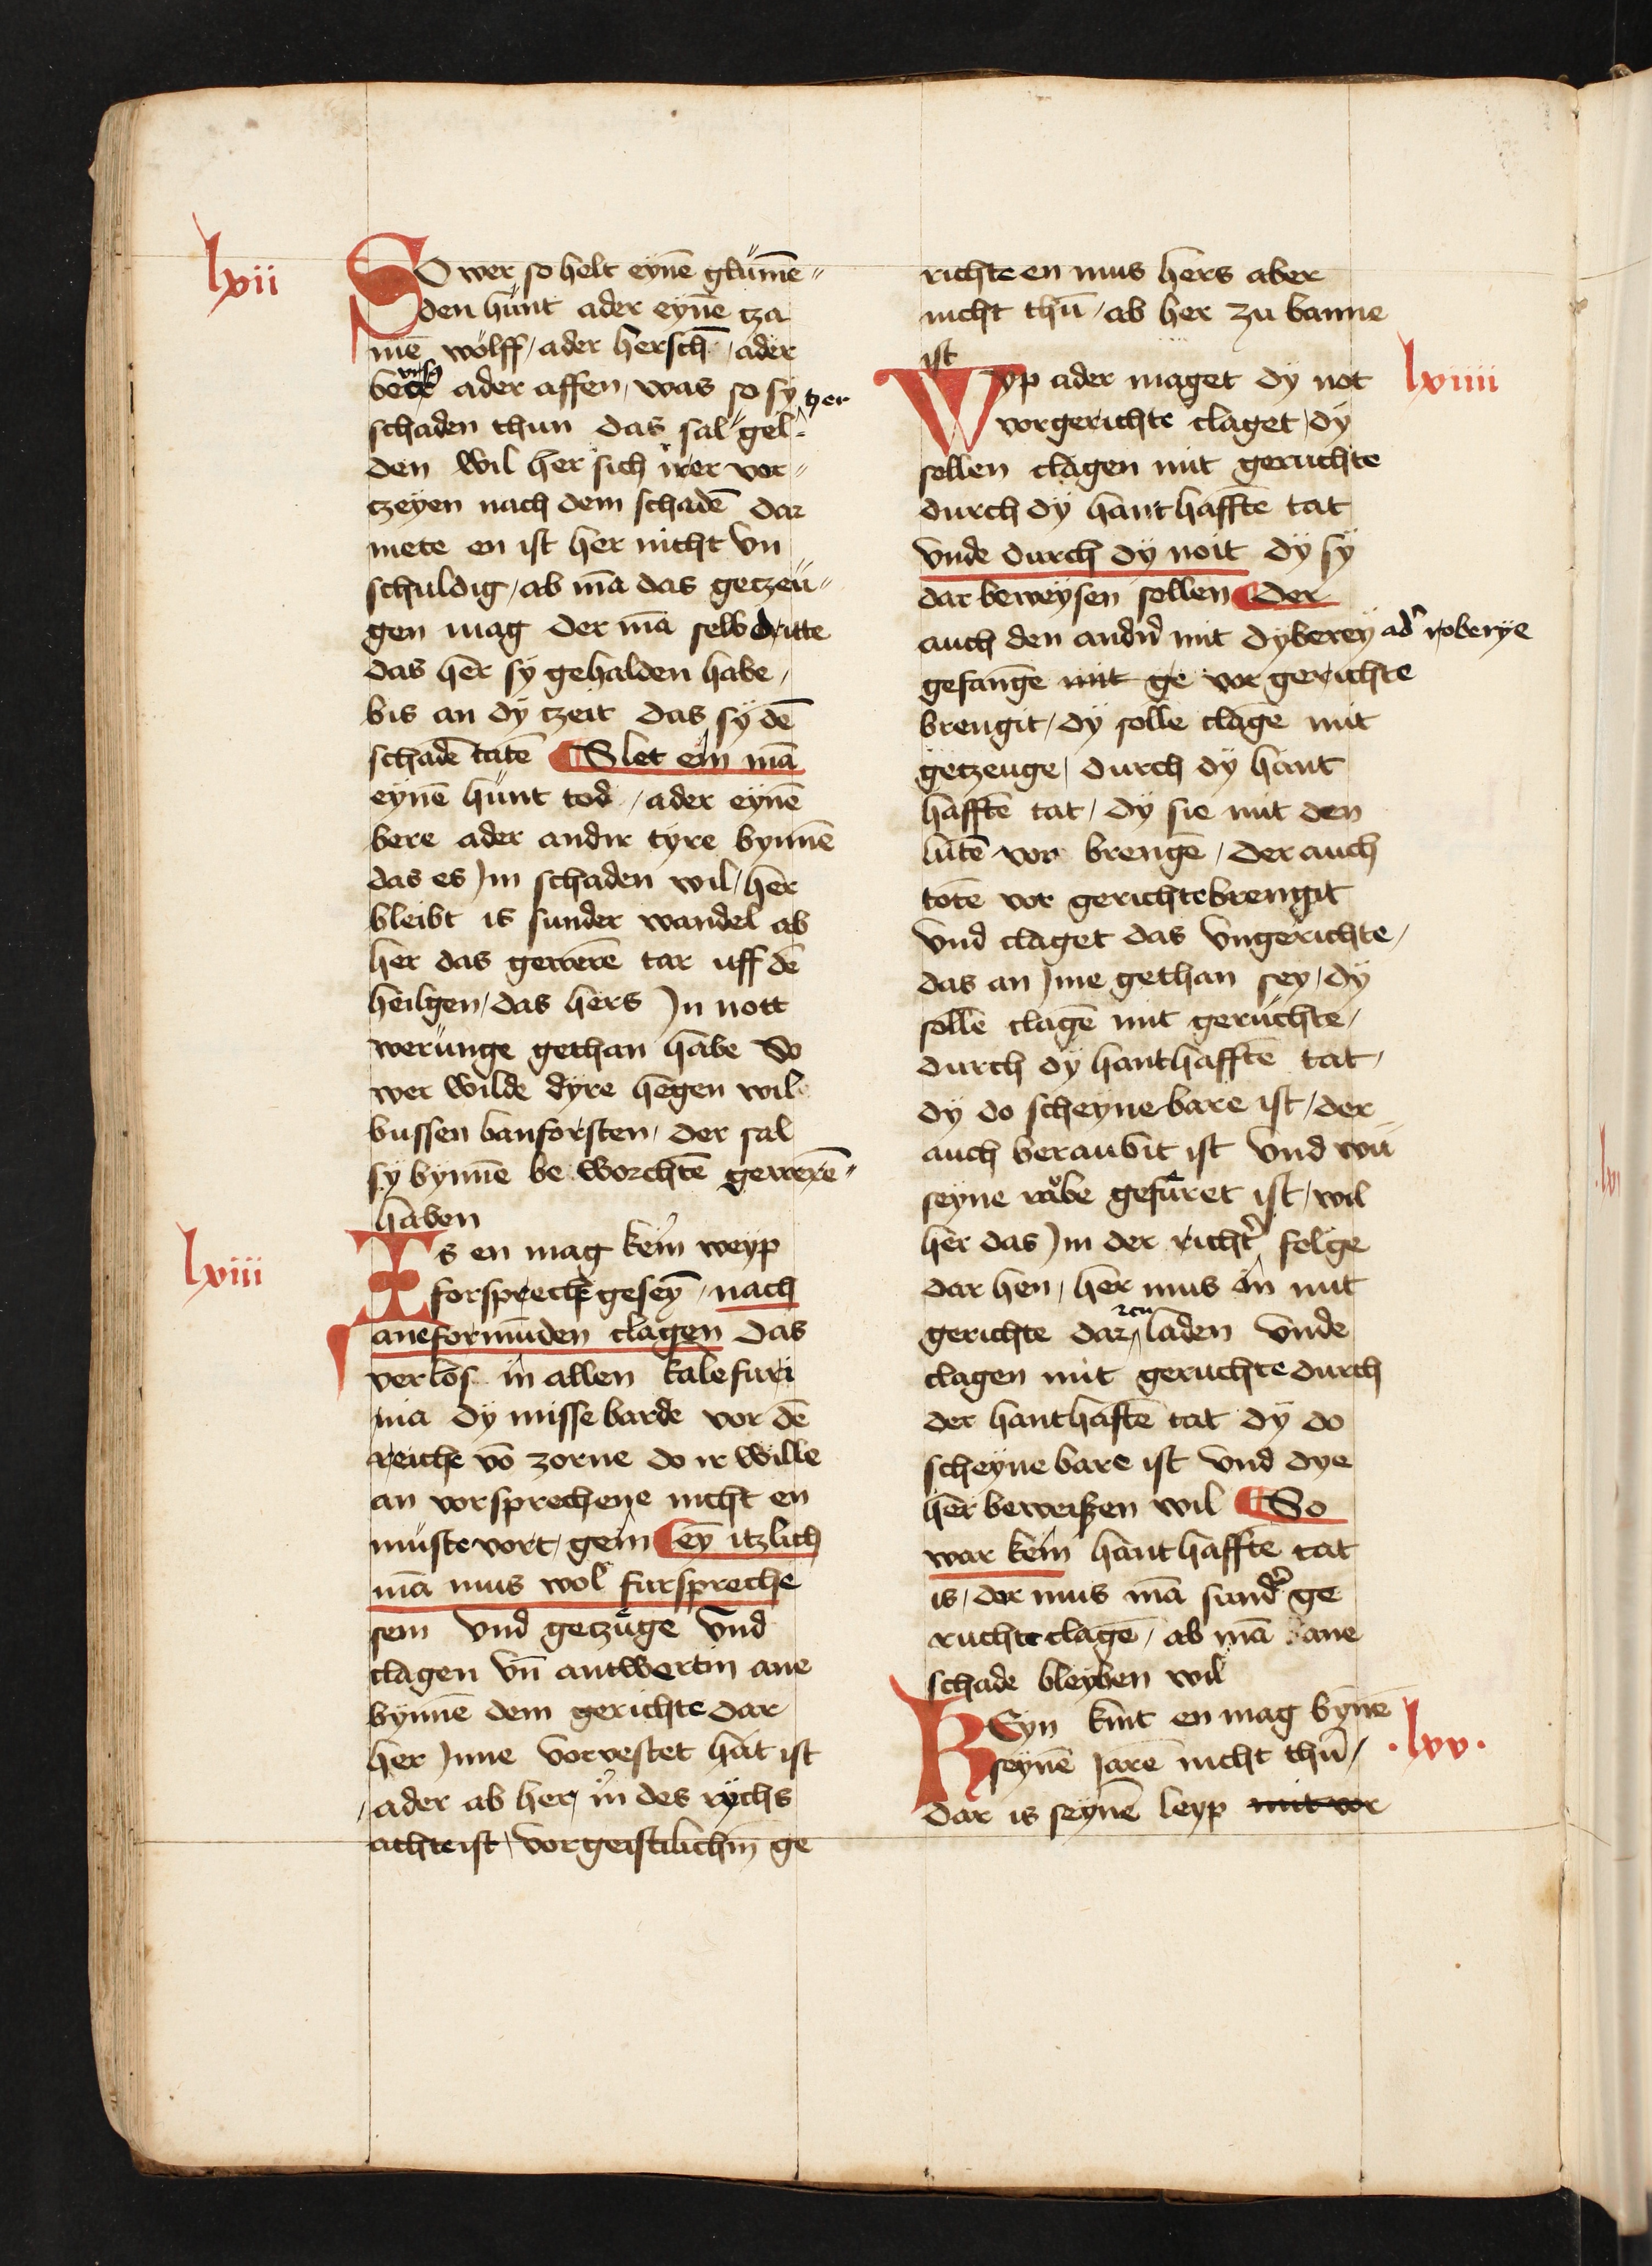 lxii
SO wer so helt eynē glumē„
den hunt ader eynē tza
mē wolff / ader hersch / ader
bere ader affen / was so sy tzer
schaden thun das sal gel„
den wil her sich irer vor„
tzeyen nach dem schadē dar
mete en ist her nicht vn
schuldig / ab mā das getzeu„
gen mag der mā selb dritte
das her sy gehalden habe /
bis an dy tzeit das sy dē
schadē tatē Slet ein mā
eynē hunt tod / ader eynē
bere ader andir tyre bynnē
das es Jm schaden wil / her
bleibt is sunder wandel ab
her das gewerē tar uff dē
heilgen / das hers Jn nott
werunge gethan habe So
wer wilde dyre hegen wil
bussen banforsten / der sal
sy bynnē be worchtē gewerē„
haben
lxiii
Is en mag kein weyp
forspreche gesey / nach
ane formūden clagen das
verlos in allen kalefuri
nia dy misse barde vor dē
reiche vō zorne do ir wille
an vorsprechene nicht en
muste vort / gein ey itzlich
mā mus wol furspreche
sein vnd getzuge vnd
clagen vn̄ antwertin ane
bynnē dem gerichte dar
her Jnne vorvestet hat ist
/ ader ab her in des rychs
achte ist / vor geistlichm̄ ge
richte en mus hers aber
nicht thū / ab her zu banne
ist
lxiiii
Wyp ader maget dy not
vor gerichte claget / dy
sollen clagen mit geruchte
durch dy hanthafftē tat
vnde durch dy noit dy sy
dar beweysen sollen Der
auch den andn̄ mit dyberey ad' roberye
gefangē mit ge vor gerichte
brengit / dy sollē clagē mit
getzeuge / durch dy hant
hafftē tat / dy sie mit den
lutē vor brengē / der auch
totē vor gerichte brengit
vnd claget das vngerichte /
das an Jme gethan sey / dy
sollē clagē mit geruchte /
durch dy hanthafftē tat /
dy do scheyne bare ist / der
auch beraubit ist vnd wu
seyne robe gefuret ist / wil
her das Jm der richt' folge
dar hen / her mus in mit
gerichte dar zcu laden vnde
clagen mit geruchte durch
der hanthaftē tat dy do
scheyne bare ist vnd dye
her beweiszen wil So
war kein hanthafftē tat
is / dor mus mā sund' ge
ruchte clagē / ab mā ane
schade bleyben wil
lxv
KEyn kint en mag bynē
seynē Jarē nicht thū /
dar is seynē leyp mit vor